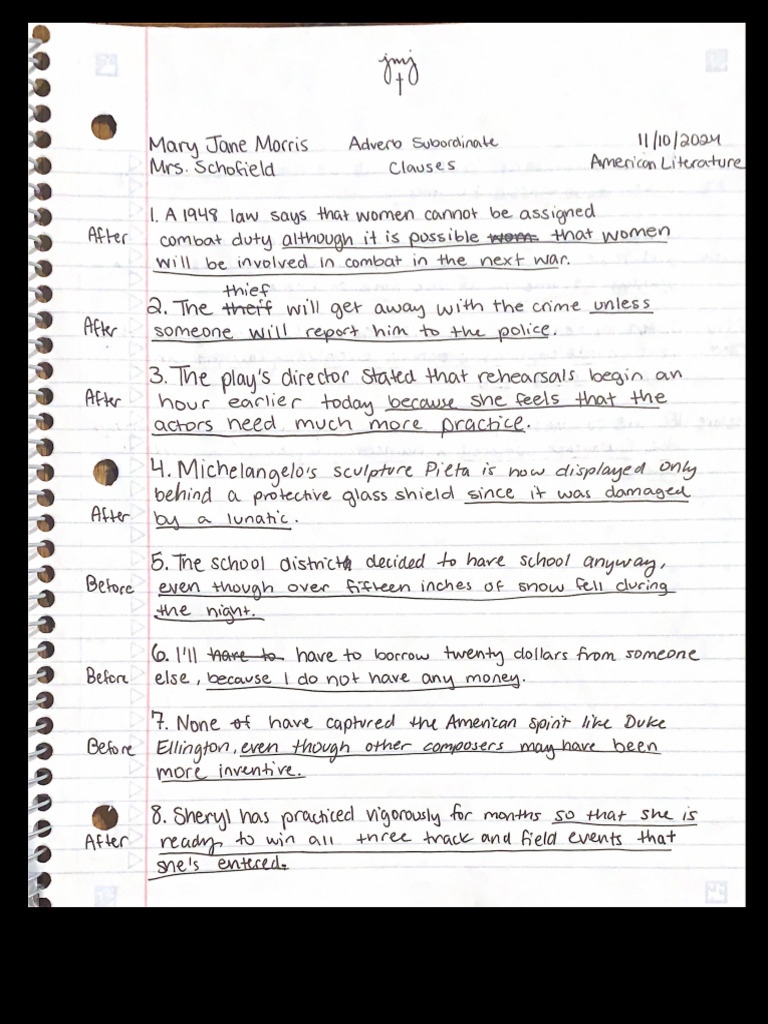 jmj
Mary Jane Morris Adverb Subordinate 11/10/2024
Mrs. Schofield Clauses American Literature
1. A 1948 law says that women cannot be assigned
After combat duty although it is possible wom. that women
will be involved in combat in the next war.
thief
2. The theif will get away with the crime unless
After someone will report him to the police.
3. The play's director stated that rehearsals begin an
After hour earlier today because she feels that the
actors need much more practice.
4. Michelangelo's sculpture Pieta is now displayed only
behind a protective glass shield since it was damaged
After by a lunatic.
5. The school district decided to have school anyway,
Before even though over fifteen inches of snow fell during
the night.
6. I'll have to have to borrow twenty dollars from someone
Before else, because I do not have any money.
7. None of have captured the American spirit like Duke
Before Ellington, even though other composers may have been
more inventive.
8. Sheryl has practiced vigorously for months so that she is
After ready to win all three track and field events that
she's entered.